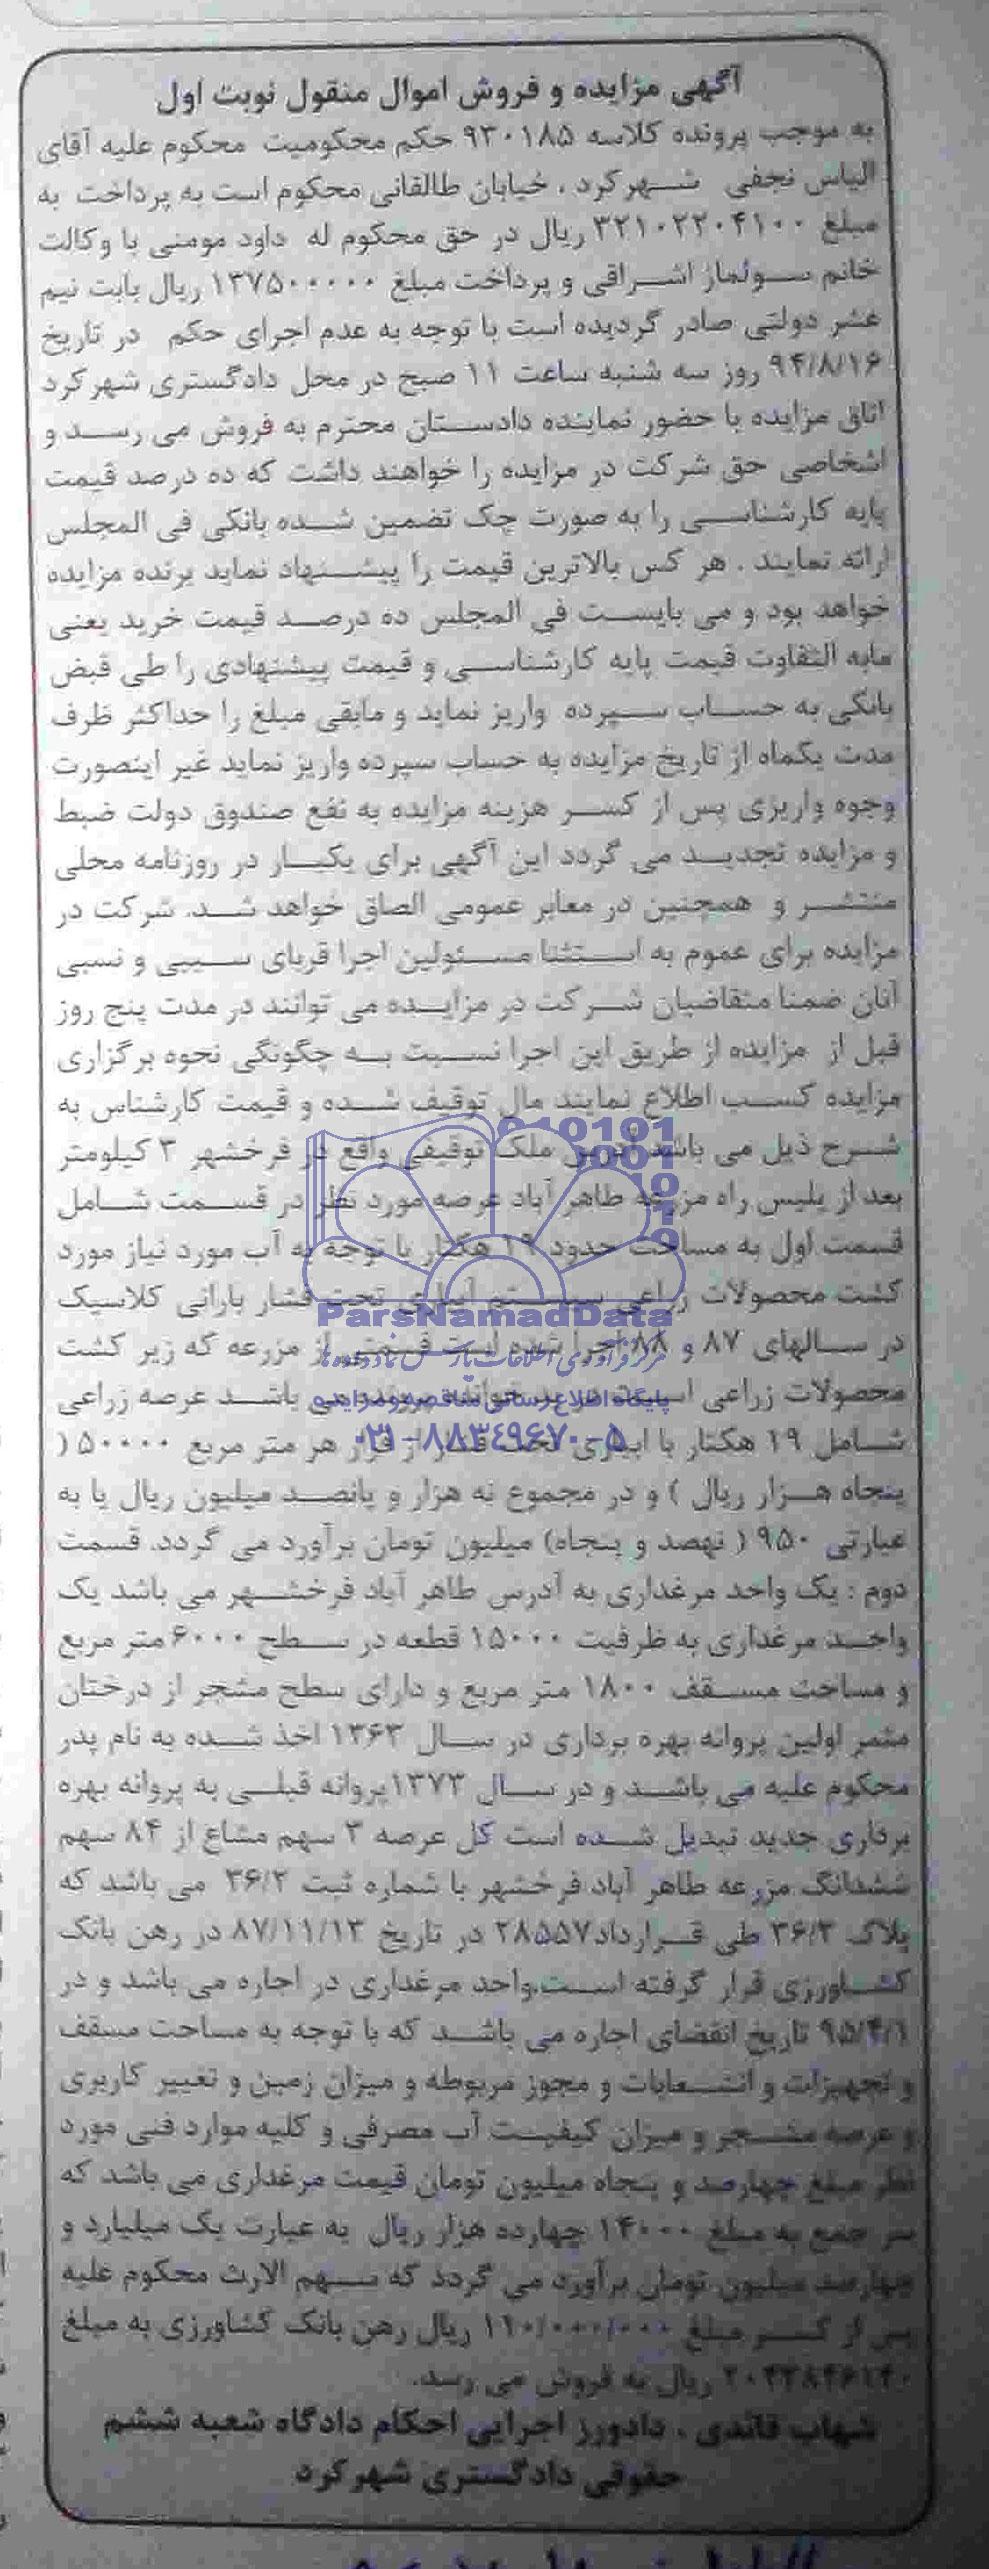 آگهی مزایده و فروش اموال منقول نوبت اول
به موجب پرونده کلاسه ۹۳۰۱۸۵ حکم محکومیت محکوم علیه آقای
الیاس نجفی شهرکرد ، خیابان طالقانی محکوم است به پرداخت به
مبلغ ۳۲۱۰۲۲۰۴۱۰۰ ریال در حق محکوم له داود مومنی با وکالت
خانم سولماز اشراقی و پرداخت مبلغ ۱۳۷۵۰۰۰۰۰ ریال بابت نیم
عشر دولتی صادر گردیده است با توجه به عدم اجرای حکم در تاریخ
۹۴/۸/۱۶ روز سه شنبه ساعت ۱۱ صبح در محل دادگستری شهرکرد
اتاق مزایده با حضور نماینده دادستان محترم به فروش می رسد و
اشخاصی حق شرکت در مزایده را خواهند داشت که ده درصد قیمت
پایه کارشناسی را به صورت چک تضمین شده بانکی فی المجلس
ارائه نمایند . هر کس بالاترین قیمت را پیشنهاد نماید برنده مزایده
خواهد بود و می بایست فی المجلس ده درصد قیمت خرید یعنی
مابه التفاوت قیمت پایه کارشناسی و قیمت پیشنهادی را طی قبض
بانکی به حساب سپرده واریز نماید و مابقی مبلغ را حداکثر ظرف
مدت یکماه از تاریخ مزایده به حساب سپرده واریز نماید غیر اینصورت
وجوه واریزی پس از کسر هزینه مزایده به نفع صندوق دولت ضبط
و مزایده تجدید می گردد این آگهی برای یکبار در روزنامه محلی
منتشر و همچنین در معابر عمومی الصاق خواهد شد. شرکت در
مزایده برای عموم به استثنا مسئولین اجرا قربای سببی و نسبی
آنان ضمنا متقاضیان شرکت در مزایده می توانند در مدت پنج روز
قبل از مزایده از طریق این اجرا نسبت به چگونگی نحوه برگزاری
مزایده کسب اطلاع نمایند مال توقیف شده و قیمت کارشناس به
شرح ذیل می باشد آدرس ملک توقیفی واقع در فرخشهر ۳ کیلومتر
بعد از پلیس راه مزرعه طاهر آباد عرصه مورد نظر در قسمت شامل
قسمت اول به مساحت حدود ۱۹ هکتار با توجه به آب مورد نیاز مورد
کشت محصولات زراعی سیستم آبیاری تحت فشار بارانی کلاسیک
در سالهای ۸۷ و ۸۸ اجرا شده است قسمتی از مزرعه که زیر کشت
محصولات زراعی می باشد عرصه زراعی
شامل ۱۹ هکتار با آبیاری تحت فشار از قرار هر متر مربع ۵۰۰۰۰ (
پنجاه هزار ریال ) و در مجموع نه هزار و پانصد میلیون ریال یا به
عبارتی ۹۵۰ ( نهصد و پنجاه) میلیون تومان برآورد می گردد. قسمت
دوم : یک واحد مرغداری به آدرس طاهر آباد فرخشهر می باشد یک
واحد مرغداری به ظرفیت ۱۵۰۰۰ قطعه در سطح ۶۰۰۰ متر مربع
و مساحت مسقف ۱۸۰۰ متر مربع و دارای سطح مشجر از درختان
مثمر اولین پروانه بهره برداری در سال ۱۳۶۳ اخذ شده به نام پدر
محکوم علیه می باشد و در سال ۱۳۷۳ پروانه قبلی به پروانه بهره
برداری جدید تبدیل شده است کل عرصه ۳ سهم مشاع از ۸۴ سهم
ششدانگ مزرعه طاهر آباد فرخشهر با شماره ثبت ۳۶/۲ می باشد که
پلاک ۳۶/۲ طی قرارداد ۲۸۵۵۷ در تاریخ ۸۷/۱۱/۱۳ در رهن بانک
کشاورزی قرار گرفته است.واحد مرغداری در اجاره می باشد و در
۹۵/۴/۱ تاریخ انقضای اجاره می باشد که با توجه به مساحت مسقف
و تجهیزات و انشعابات و مجوز مربوطه و میزان زمین و تغییر کاربری
و عرصه مشجر و میزان کیفیت آب مصرفی و کلیه موارد فنی مورد
نظر مبلغ چهارصد و پنجاه میلیون تومان قیمت مرغداری می باشد که
سر جمع به مبلغ ۱۴۰۰۰ چهارده هزار ریال به عبارت یک میلیارد و
چهارصد میلیون تومان برآورد می گردد که سهم الارث محکوم علیه
پس از کسر مبلغ ۱۱۰/۰۰۰/۰۰۰ ریال رهن بانک کشاورزی به مبلغ
۲۰۴۳۸۴۶۱۴۰ ریال به فروش می رسد.
شهاب قائدی ، دادورز اجرایی احکام دادگاه شعبه ششم
حقوقی دادگستری شهرکرد
ParsNamadData
مرکز فرآوری اطلاعات پارس نماد داده ها
پایگاه اطلاع رسانی مناقصه و مزایده
۰۲۱-۸۸۳۴۹۶۷۰-۵